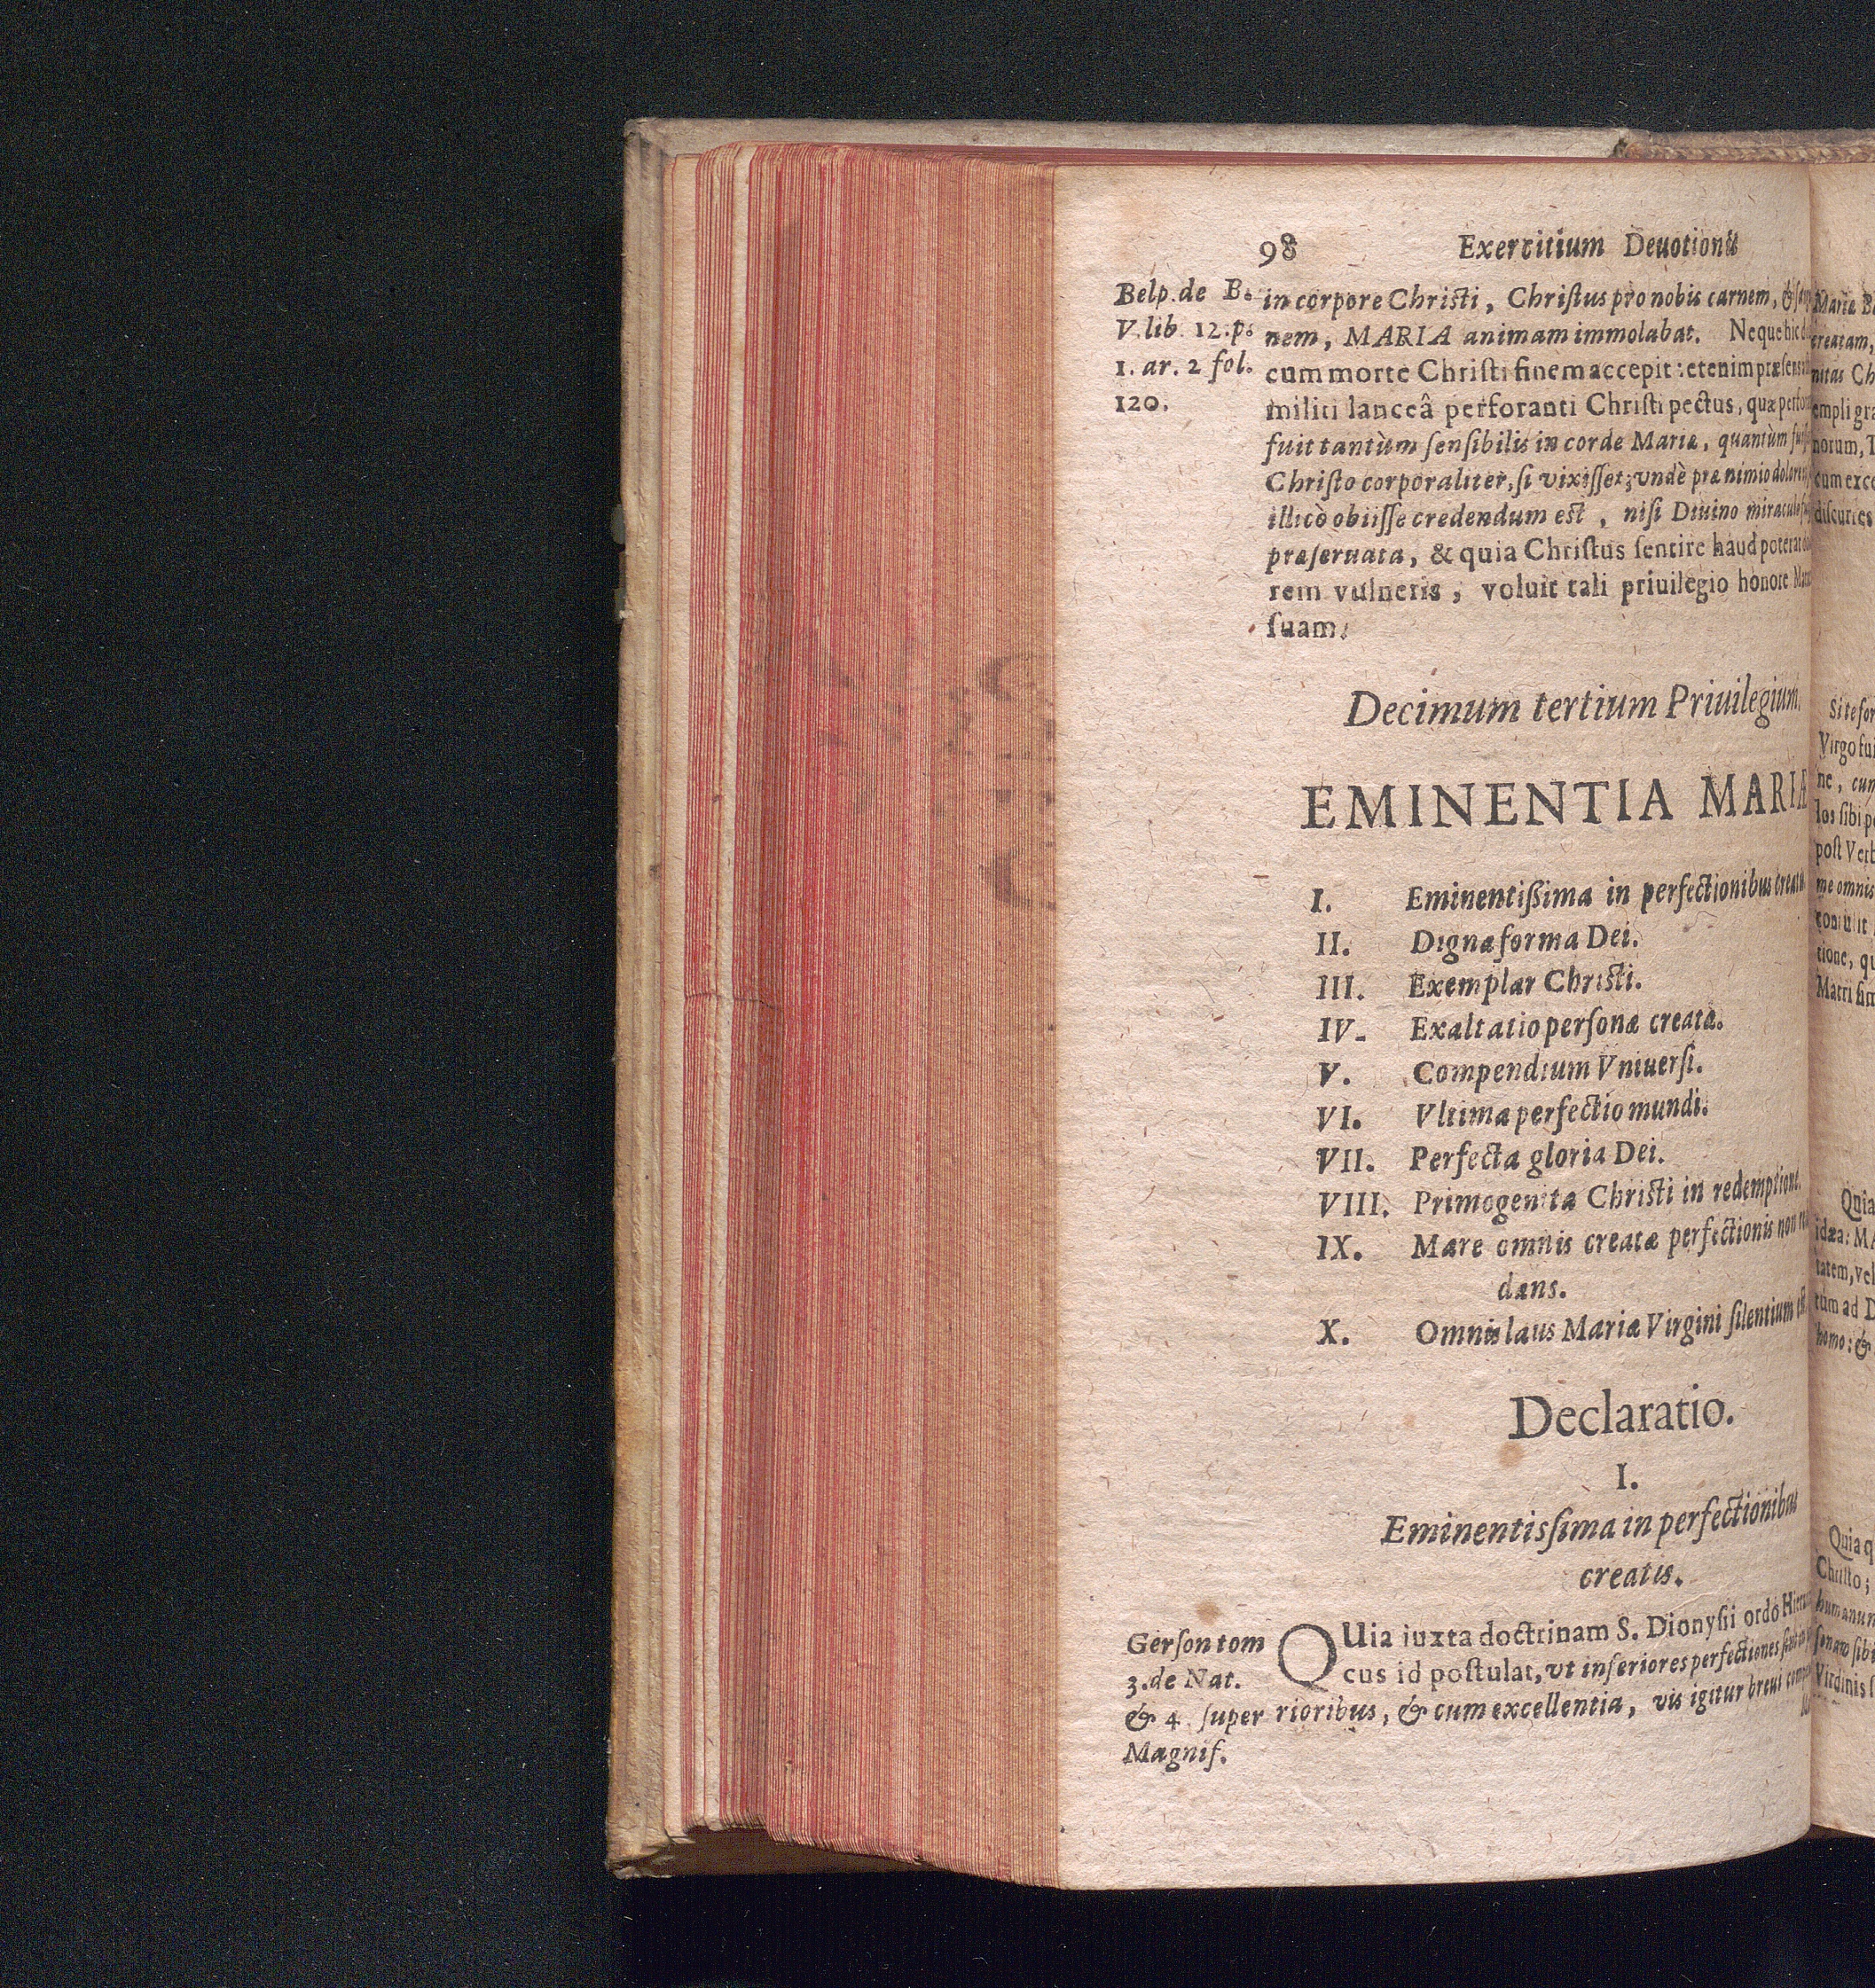 98 Exercitium Deuotionis
Belp. de B.
V. lib. 12. p.
1. ar. 2 fol.
120.
in corpore Christi, Chriſtus pro nobis carnem, &
nem, MARIA animam immolabat. Neque hic
cum morte Chriſti finem accepit: etenim
militi lanceâ perforanti Chriſti pectus, quæ
fuit tantùm ſenſibilis in corde Mariæ, quantùm
Chriſto corporaliter, ſi vixiſſet; vndè præ nimio
illicò obiiſſe credendum est, niſi Diuino
præſeruata, & quia Chriſtus ſentire haud poterat
rem vulneris, voluit tali priuilegio honore
ſuam.
Decimum tertium Priuilegium.
EMINENTIA MARIÆ
I. Eminentißima in perfectionibus
II. Dignæ forma Dei.
III. Exemplar Christi.
IV. Exaltatio perſonæ creatæ.
V. Compendium Vniuerſi.
VI. Vltima perfectio mundi.
VII. Perfecta gloria Dei.
VIII. Primogenita Christi in redemptione.
IX. Mare omnis creatæ perfectionis non
dans.
X. Omnis laus Mariæ Virgini ſilentium est.
Declaratio.
I.
Eminentisſima in perfectionibus
creatis.
Gerſon tom
3. de Nat.
& 4 ſuper
Magnif.
QUia iuxta doctrinam S. Dionyſii ordo
cus id poſtulat, vt inferiores perfectiones
rioribus, & cum excellentia, vis igitur breui
Mariæ
creatam,
nitas
empli
norum,
cum
diſcurres
Virgo
ne, cum
los ſibi
poſt
me omnis
tione,
Matri
Quia
idæa:
tatem, vel
tum ad
homo: &
Quia
Chriſto;
humanum
Virginis